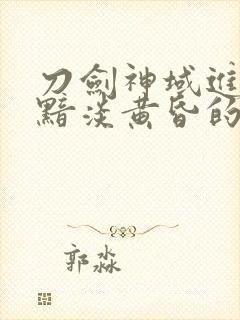 刀劍神域進
黯淡黃昏的
郭淼